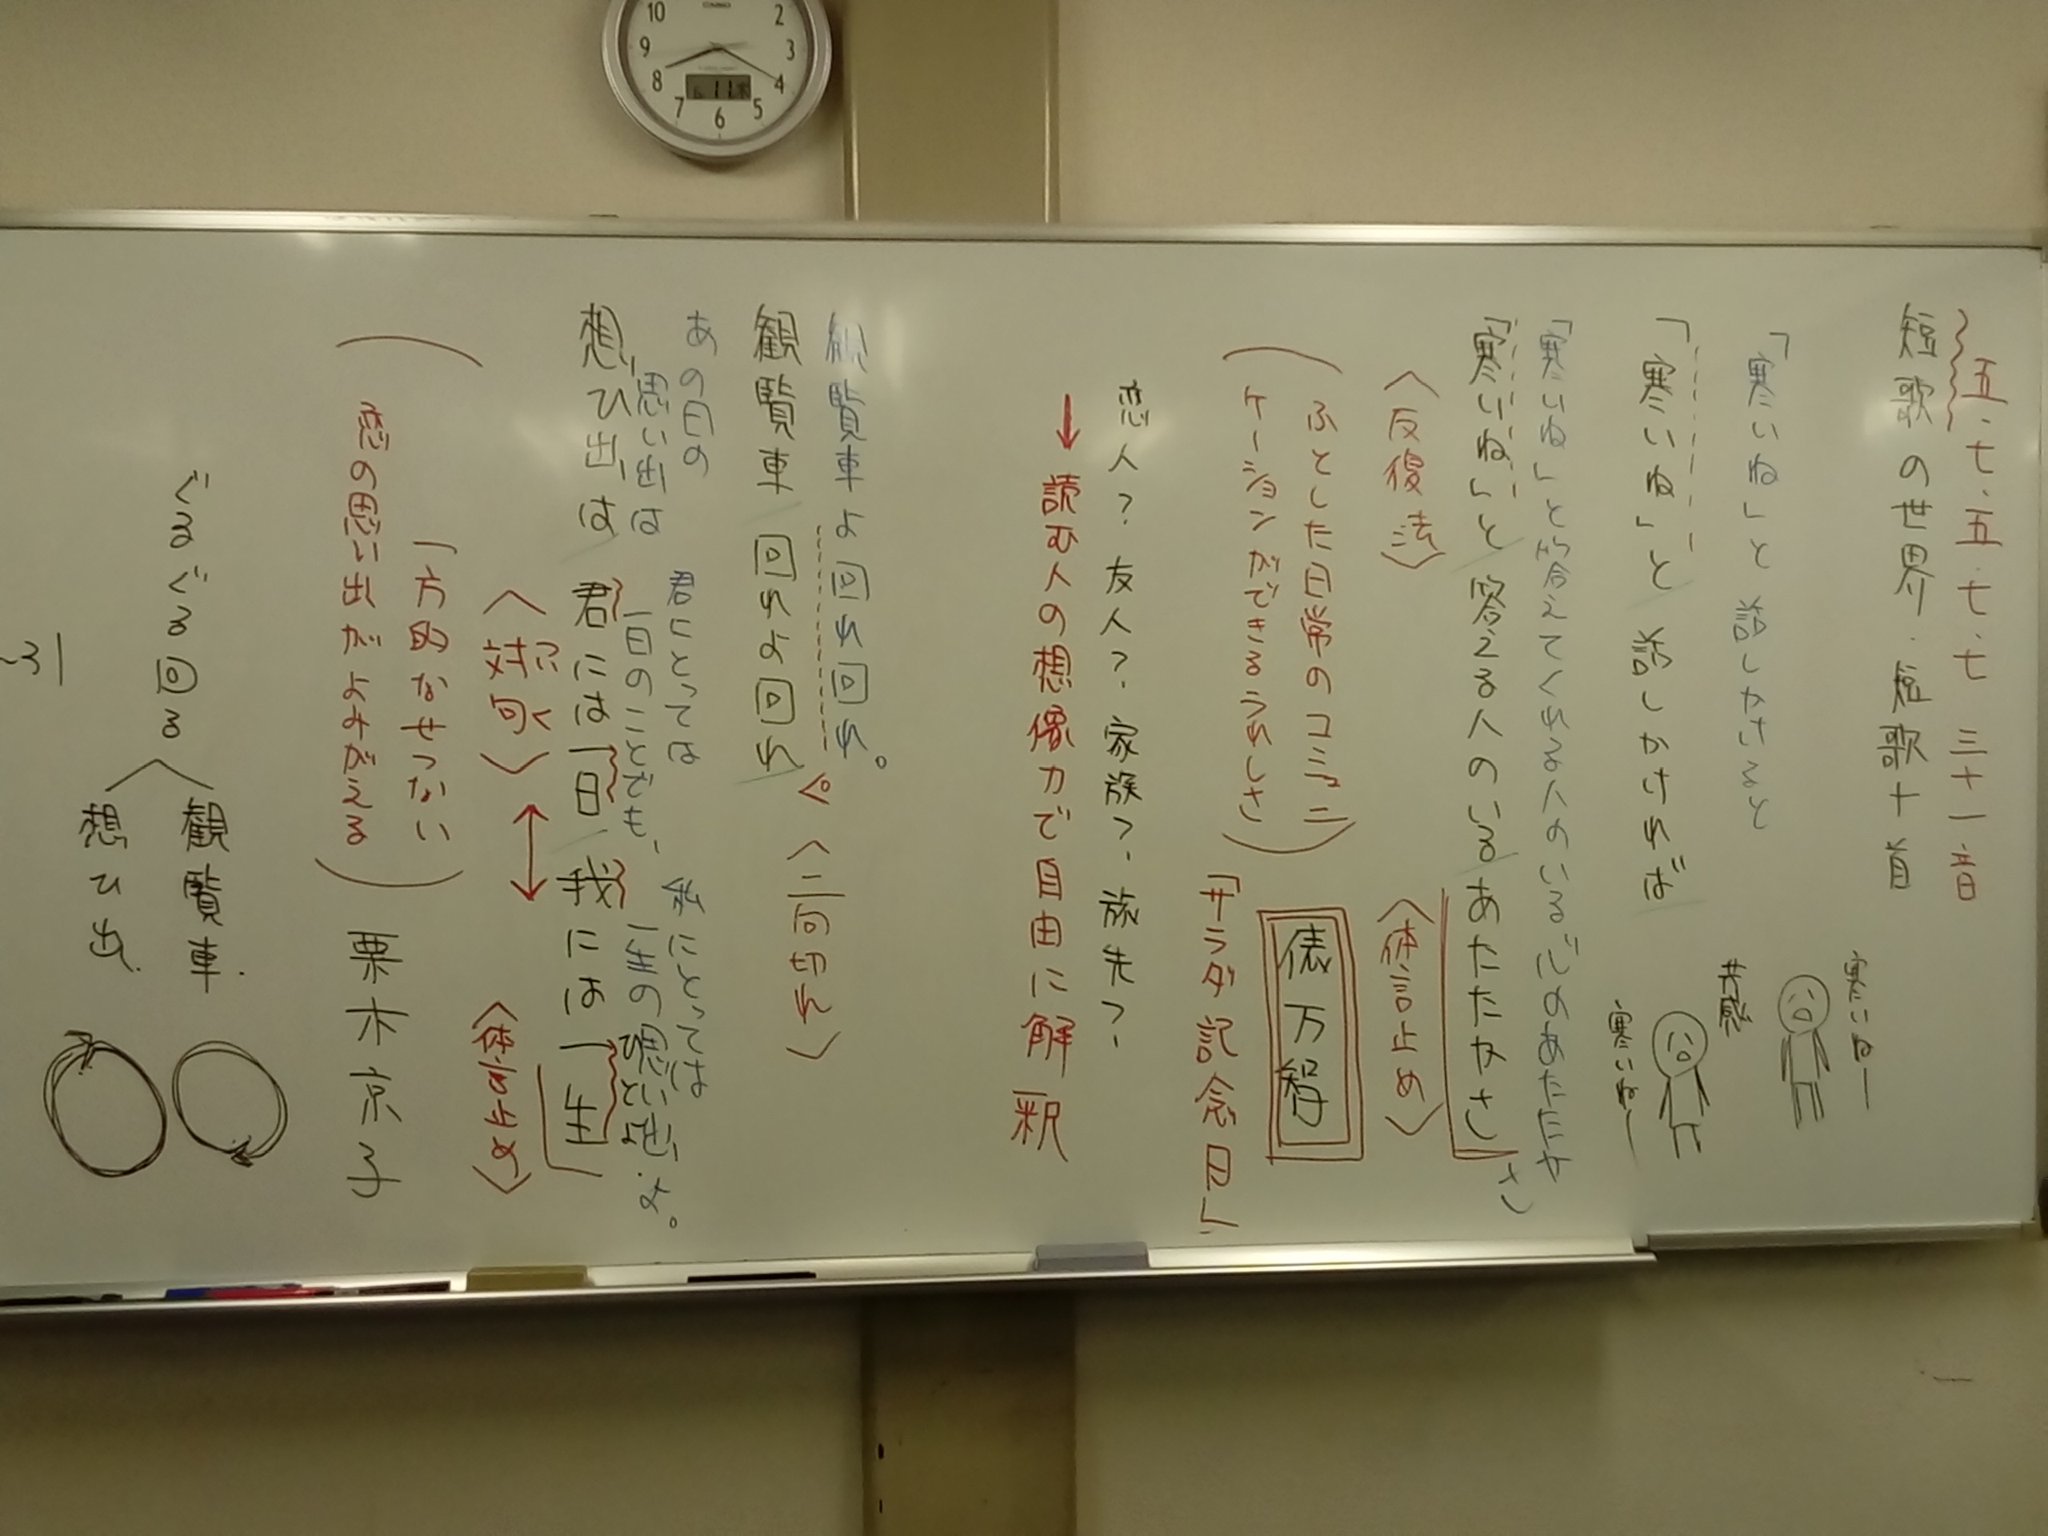 五・七・五・七・七 三十一音
短歌の世界・短歌十首
「寒いね」と話しかけると
「寒いね」と話しかければ
寒いねー
共感
寒いねー
「寒いね」と答えてくれる人のいる心のあたたかさ
「寒いね」と答える人のいるあたたかさ
〈反復法〉
〈体言止め〉
(ふとした日常のコミュニ
ケーションができるうれしさ)
俵万智
「サラダ記念日」
恋人?友人?家族?旅先?
↓読む人の想像力で自由に解釈
観覧車よ回れ回れ。
観覧車回れよ回れ
〈二句切れ〉
あの日の
思い出は
君にとっては
一日のことでも、
私にとっては
一生の思い出よ。
想ひ出は君には一日我には一生
〈対句〉
ついく
〈体言止め〉
(一方的なせつない
恋の思い出がよみがえる)
栗木京子
ぐるぐる回る
観覧車.
想ひ出.
10
2
9
3
8
4
7
5
6
CASIO
11